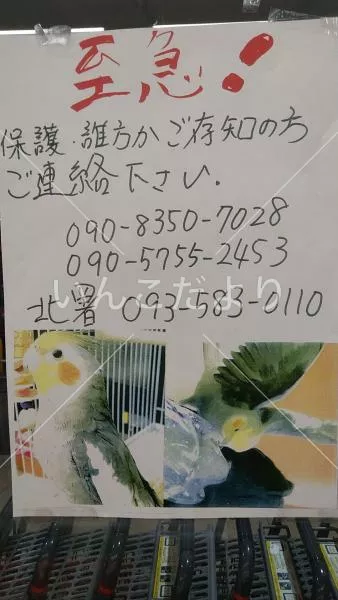 至急!
保護・誰方かご存知の方
ご連絡下さい.
090-8350-7028
090-5755-2453
北署 093-583-0110
いんこだより